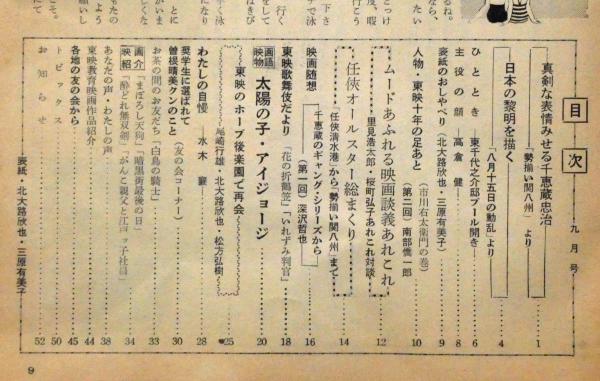 目次
九月号
真剣な表情みせる千恵蔵忠治
「勢揃い関八州」より
1
日本の黎明を描く
「八月十五日の動乱」より
4
ひととき―東千代之介邸プール開き―
6
主役の顔―高倉健―
8
表紙のおしゃべり(北大路欣也・三原有美子)
9
人物・東映十年の足あと
(市川右太衛門の巻)
(第二回)南部僑一郎
10
ムードあふれる映画談義あれこれ
里見浩太郎・桜町弘子あれこれ対談
12
任侠オールスター総まくり
「任侠清水港」から「勢揃い関八州」まで
14
映画随想
千恵蔵のギャング・シリーズから
(第一回)深沢哲也
16
東映歌舞伎だより
「花の折鶴笠」「いれずみ判官」
18
画面物語
太陽の子・アイジョージ
20
東映のホープ後楽園で再会
尾崎行雄・北大路欣也・松方弘樹
25
わたしの自慢―水木襄―
28
奨学生に選ばれて
曽根晴美クンのこと
(友の会コーナー)
30
お茶の間のお友だち「白鳥の騎士」
33
映画紹介
「まぼろし天狗」「暗黒街最後の日」
「酔どれ無双剣」「がんこ親父と江戸ッ子社員」
34
あなたの声・わたしの声
38
東映教育映画作品紹介
44
各地の友の会から
45
トピックス
50
お知らせ
52
表紙・北大路欣也・三原有美子
9